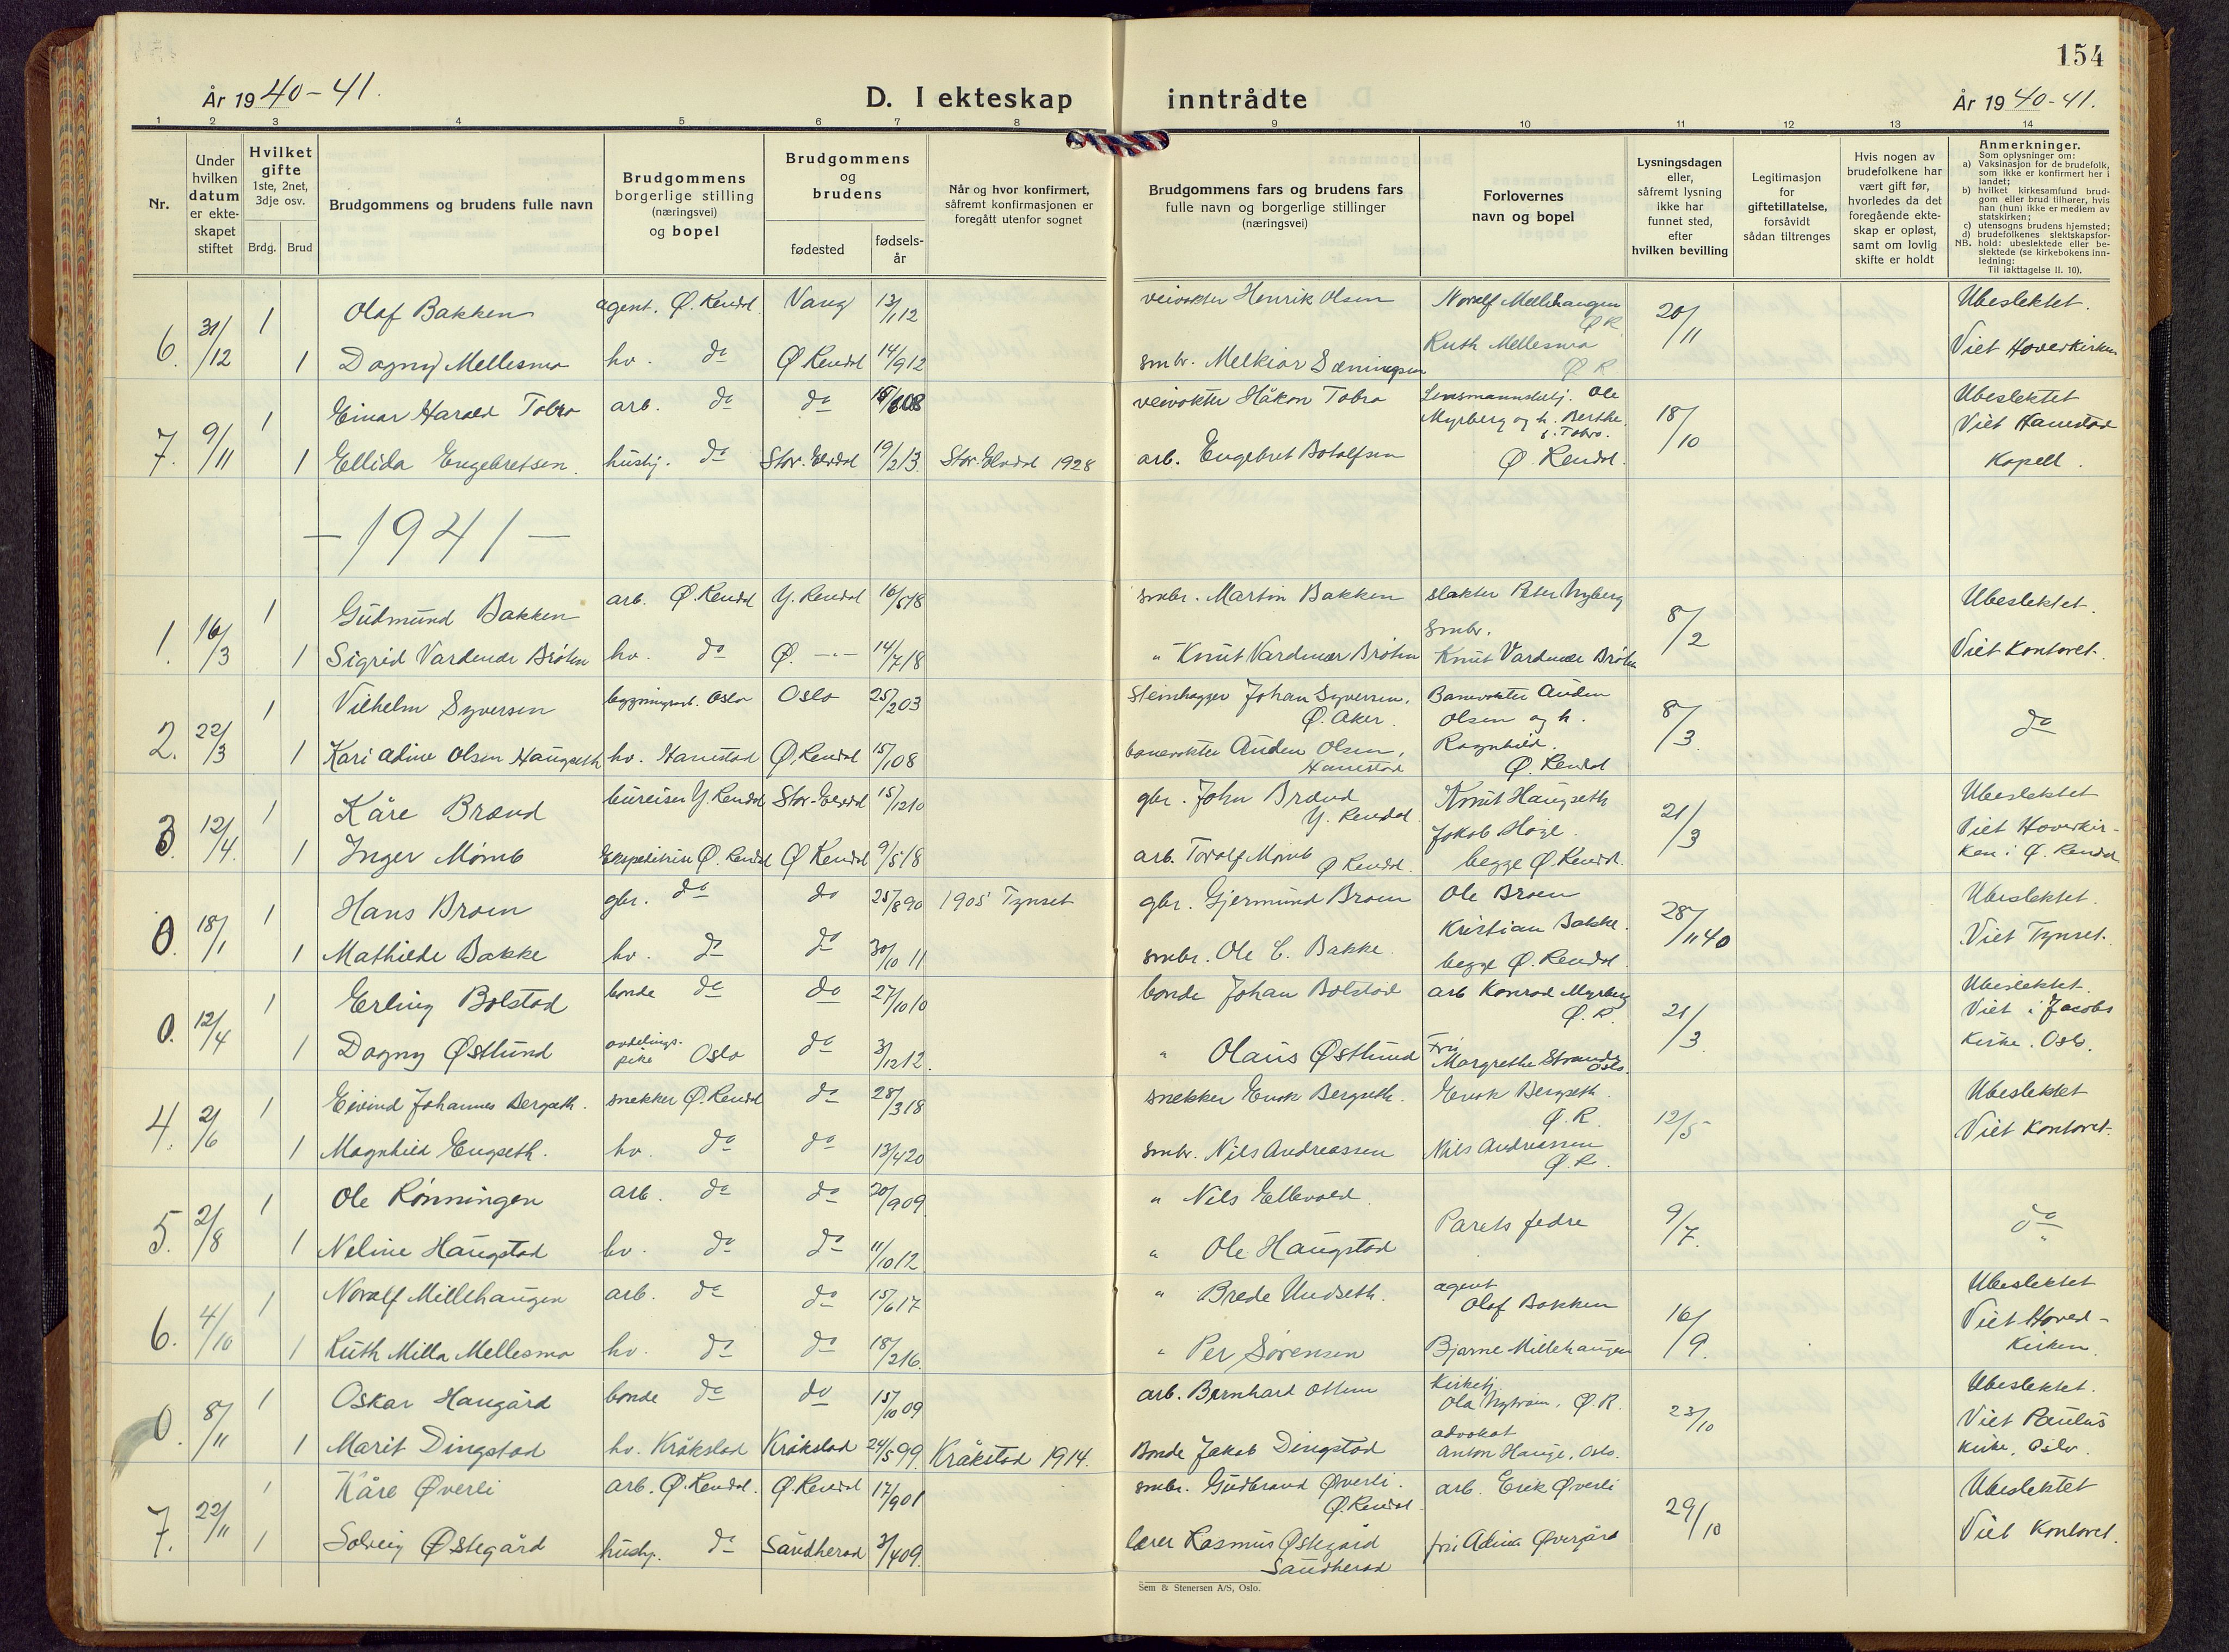 154
År 1940-41.
D. I ekteskap inntrådte
År 1940-41.
1 2 3 4 5 6 7 8 9 10 11 12 13 14
Nr.
Under hvilken datum er ekteskapet stiftet
Hvilket gifte
1ste, 2net, 3dje osv.
Brdg. Brud
Brudgommens og brudens fulle navn
Brudgommens borgerlige stilling (næringsvei) og bopel
Brudgommens og brudens
fødested
fødselsår
Når og hvor konfirmert, såfremt konfirmasjonen er foregått utenfor sognet
Brudgommens fars og brudens fars fulle navn og borgerlige stillinger (næringsvei)
Forlovernes navn og bopel
Lysningsdagen eller, såfremt lysning ikke har funnet sted, efter hvilken bevilling
Legitimasjon for giftetillatelse, forsåvidt sådan tiltrenges
Hvis nogen av brudefolkene har vært gift før, hvorledes da det foregående ekteskap er opløst, samt om lovlig skifte er holdt
Anmerkninger.
Som oplysninger om:
a) Vaksinasjon for de brudefolk, som ikke er konfirmert her i landet;
b) hvilket kirkesamfund brudgom eller brud tilhører, hvis han (hun) ikke er medlem av statskirken;
c) utensogns brudens hjemsted;
d) brudefolkenes slektskapsforhold: ubeslektede eller beslektede (se kirkebokens innledning:
NB.
Til iakttagelse II. 10).
6. 31/12 1 Olaf Bakken agent. Ø. Rendal. Vang 13/1 12 veivokter Henrik Olsen Noralf Mellehaugen Ø R. 20/11 Ubeslektet.
1 Dagny Mellesmo hv. do Ø Rendal 14/9 12 smbr. Melkior Ruth Mellesmo Ø R Viet Hovedkirken
7. 9/11 1 Einar Harald Tobro arb. do do veivokter Håkon Tobro Lensmannsbetj. Ole Myrberg og h. Berthe f. Tobro. 18/10 Ubeslektet Viet Hanestad
1 Ellida Engebretsen. hustj. do Stor-Elvdal 19/2 13. Stor-Elvdal 1928 arb. Engebret Botolfsen Ø. Rendal. Kapell.
- 1941 -
1. 16/3 1 Gudmund Bakken arb. Ø. Rendal Y. Rendal smbr. Martin Bakken slakter Peter Nyberg 8/2 Ubeslektet.
1 Sigrid Vardenær Bråten hv. do Ø. -"- 14/7 18 " Knut Vardenær Bråten smbr. Knut Vardenær Bråten Viet Kontoret.
2. 22/3 1 Vilhelm Syversen bygningsarb. Oslo Oslo 25/2 03 Steinhugger Johan Syversen. Ø. Aker. Banevokter Auden Olsen og h. 8/3. do
1 Kari Aline Olsen Haugseth hv. Hanestad Ø. Rendal 15/1 08 banevokter Auden Olsen, Hanestad Ragnhild. Ø. Rendal
3. 12/4. 1 Kåre Brænd bureiser Y. Rendal Stor-Elvdal 15/12 10 gbr. John Brænd Y. Rendal Knut Haugseth 21/3 Ubeslektet
1 Inger Momb Ekspeditrise Ø. Rendal Ø Rendal 9/5 18 arb. Torolf Momb Ø Rendal. Jakob Høye. begge Ø. Rendal. Viet Hovedkirken i Ø. Rendal
0. 18/1 1 Hans Broen gbr. do do 25/8 90 1905 Tynset gbr. Gjermund Broen Ole Broen 28/11 40 Ubeslektet.
1 Mathilde Bakke hv. do do 30/10 11 smbr. Ole C. Bakke. Kristian Bakke. begge Ø. Rendal. Viet Tynset.
0. 12/4 1 Erling Bolstad bonde do do 27/10 10 bonde Johan Bolstad arb Konrad Myrberg Ø. R. 21/3. Ubeslektet.
1 Dagny Østlund avdelingspike Oslo do 3/12 12. " Olaus Østlund Fru Margrethe Strand Oslo. Viet i Jacobs Kirke. Oslo.
4. 2/6 1 Eivind Johannes Bergseth. snekker Ø. Rendal do 28/3 18 snekker Enok Bergseth. Enok Bergseth. Ø. R. 12/5 Ubeslektet
1 Magnhild Engseth. hv. do do 13/4 20 smbr. Nils Andreassen Nils Andreassen Ø. R. Viet Kontoret.
5. 2/8 1 Ole Rønningen arb. do do 20/9 09 " Nils Ellevold. Parets fedre 9/7. do
1 Neline Haugstad hv. do do 11/10 12. " Ole Haugstad
6. 4/10 1 Noralf Millehaugen arb. do do 15/6 17 " Brede Undseth. agent Olaf Bakken 16/9. Ubeslektet
1 Ruth Milla Mellesmo hv. do do 18/2 16. " Per Sørensen Bjarne Millehaugen Viet Hovedkirken.
0. 8/11 1 Oskar Haugård bonde do do 15/10 09 arb. Bernhard Kirketj. Ola Nytrøen, Ø. R. 23/10 Ubeslektet.
1 Marit Dingstad hv. Kråkstad Kråkstad 24/5 99. Kråkstad 1914. Bonde Jakob Dingstad advokat Anton Hauge, Oslo. Viet Paulus Kirke, Oslo.
7. 22/11 1 Kåre Øverli arb. Ø. Rendal. Ø. Rendal 17/9 01 smbr. Gudbrand Øverli. Ø. Rendal. arb. Erik Øverli 29/10 Ubeslektet
1 Solveig Østegård hustj. do Sandherad 3/4 09. lærer Rasmus Østegård Sandherad fru Adina Øvergård Viet Kontoret.
Sem & Stenersen A/S, Oslo.